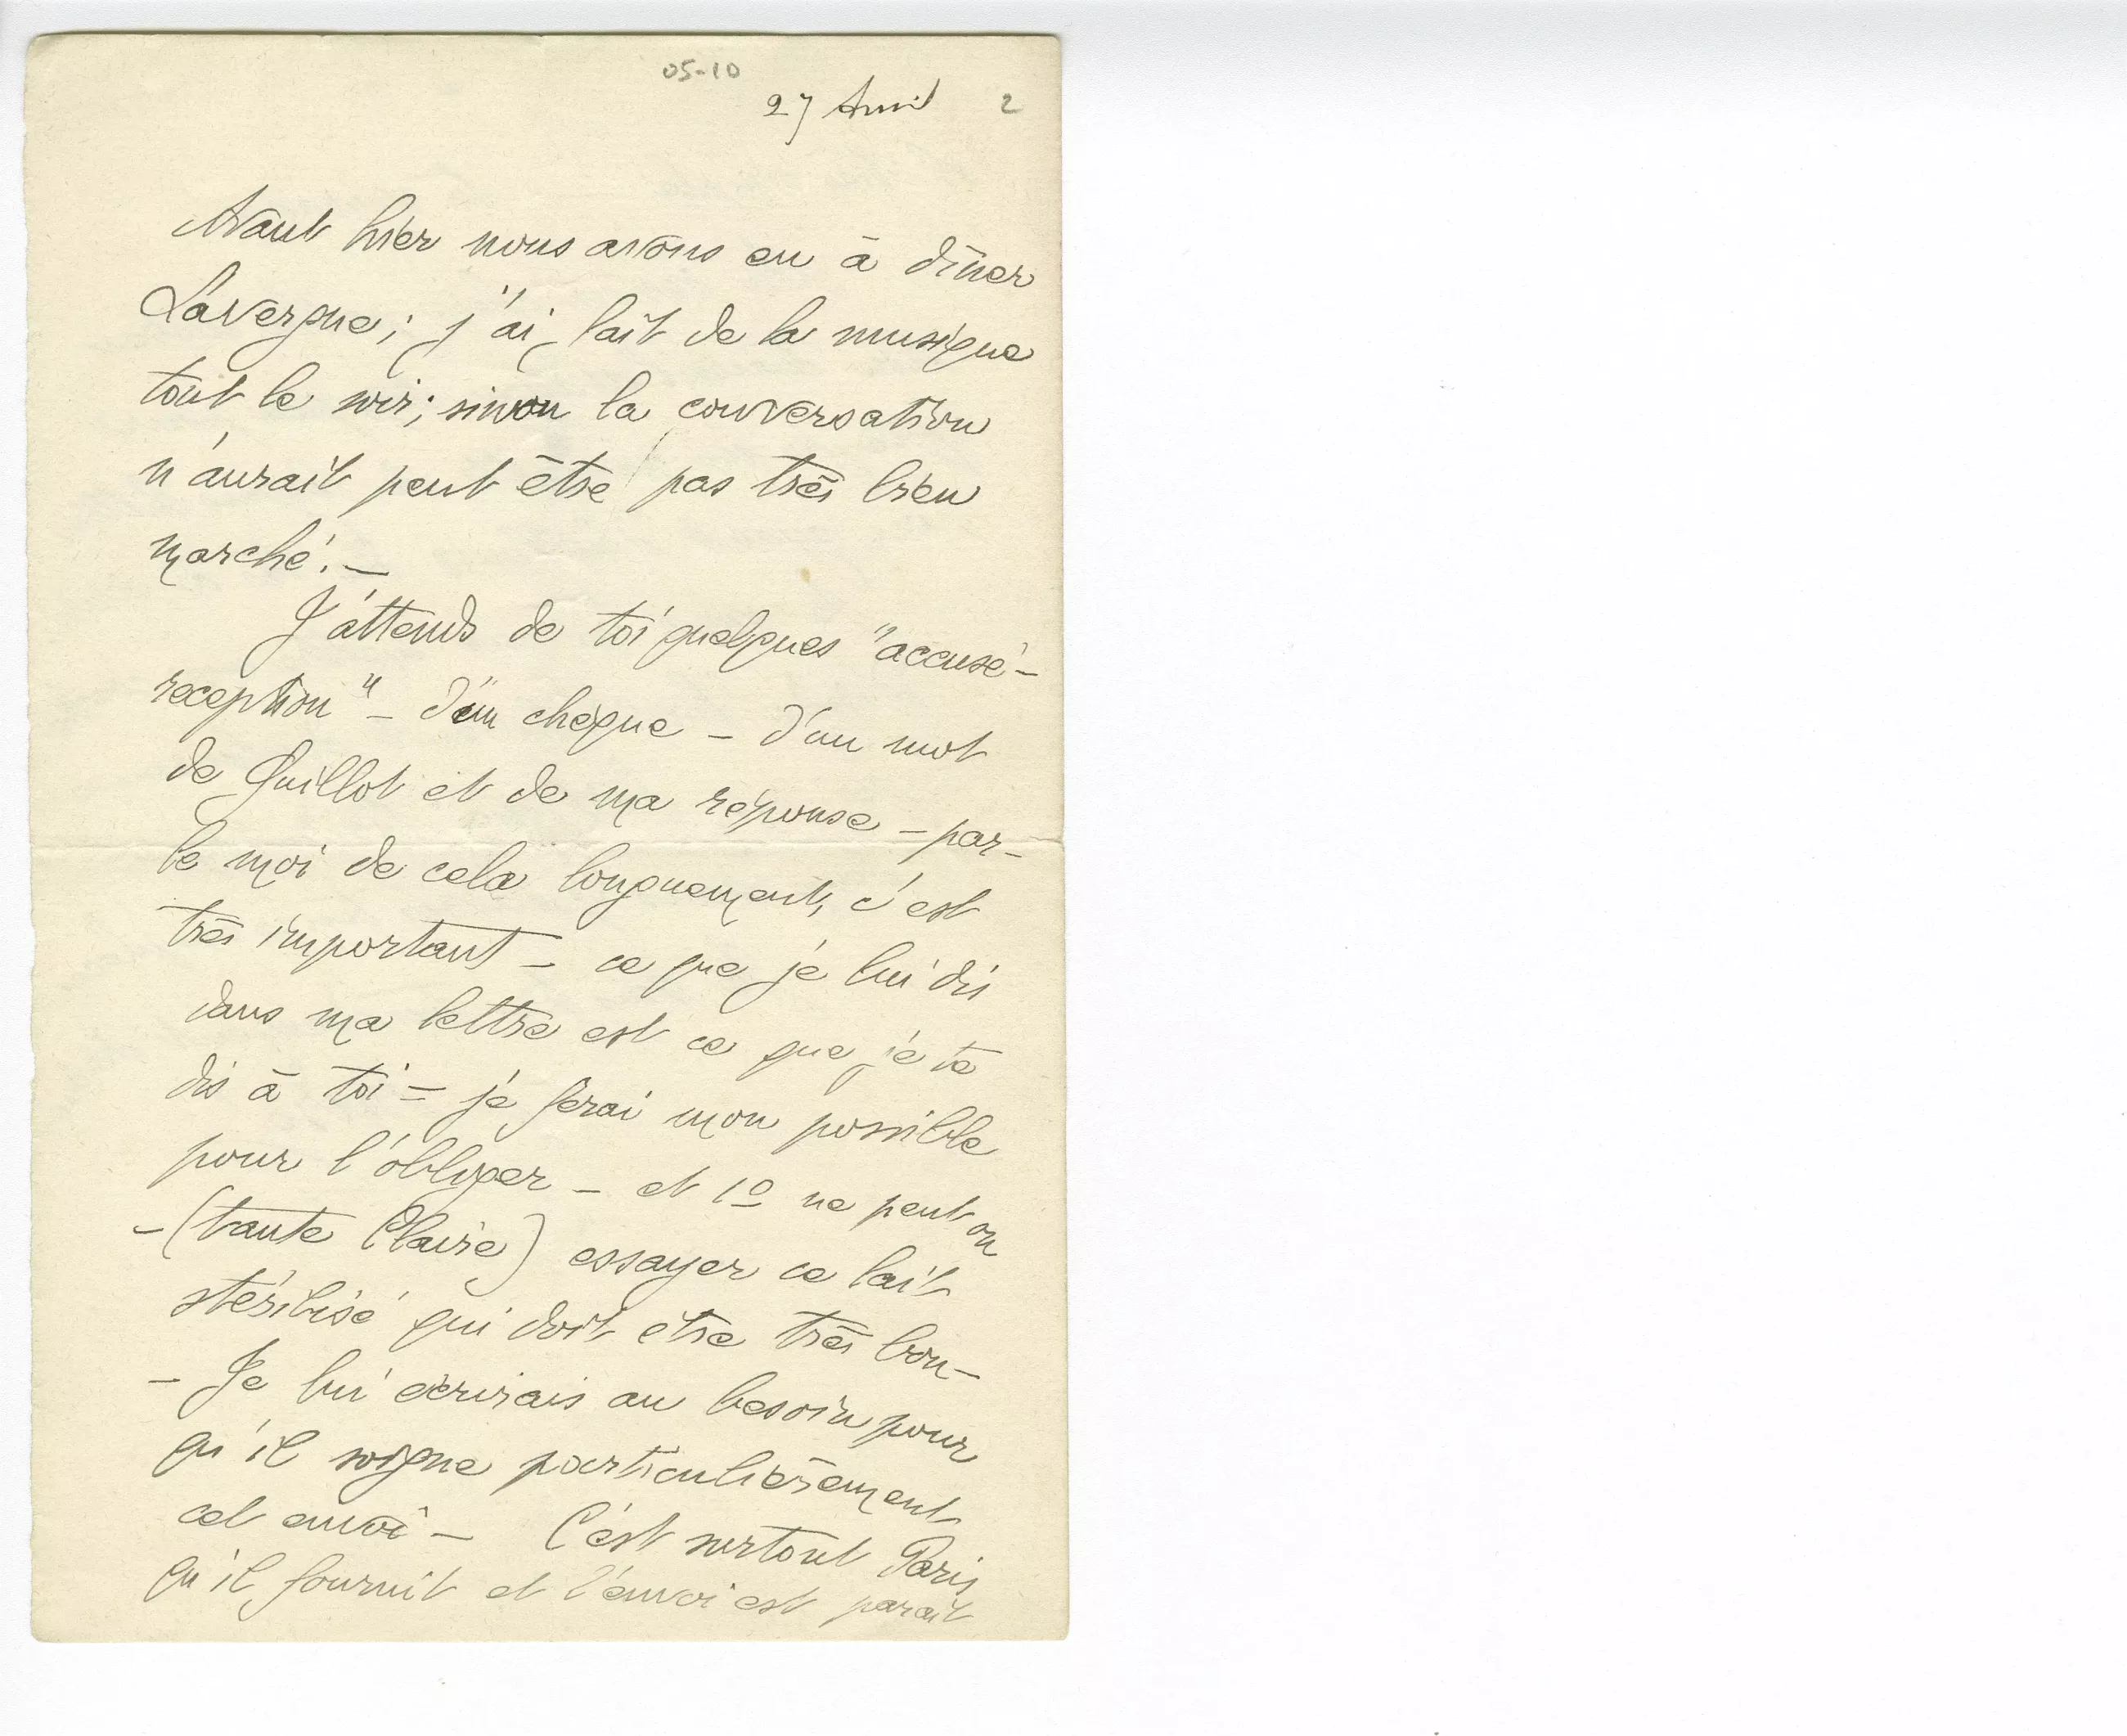 05-10
27 Avril 2
Avant hier nous avons eu à dîner
Lavergne; j'ai fait de la musique
tout le soir; sinon la conversation
n'aurait peut être pas très bien
marché. —
J'attends de toi quelques "accusé-
reception" — d'un chèque — d'un mot
de Guillot et de ma réponse — par-
le moi de cela longuement, c'est
très important — ce que je lui dis
dans ma lettre est ce que je te
dis à toi = je ferai mon possible
pour l'obliger — et 1º ne peut on
— (tante Claire) essayer ce lait
stérilisé qui doit être très bon —
— Je lui écrirais au besoin pour
qu'il soigne particulièrement
cet envoi — C'est surtout Paris
qu'il fournit et l'envoi est parait